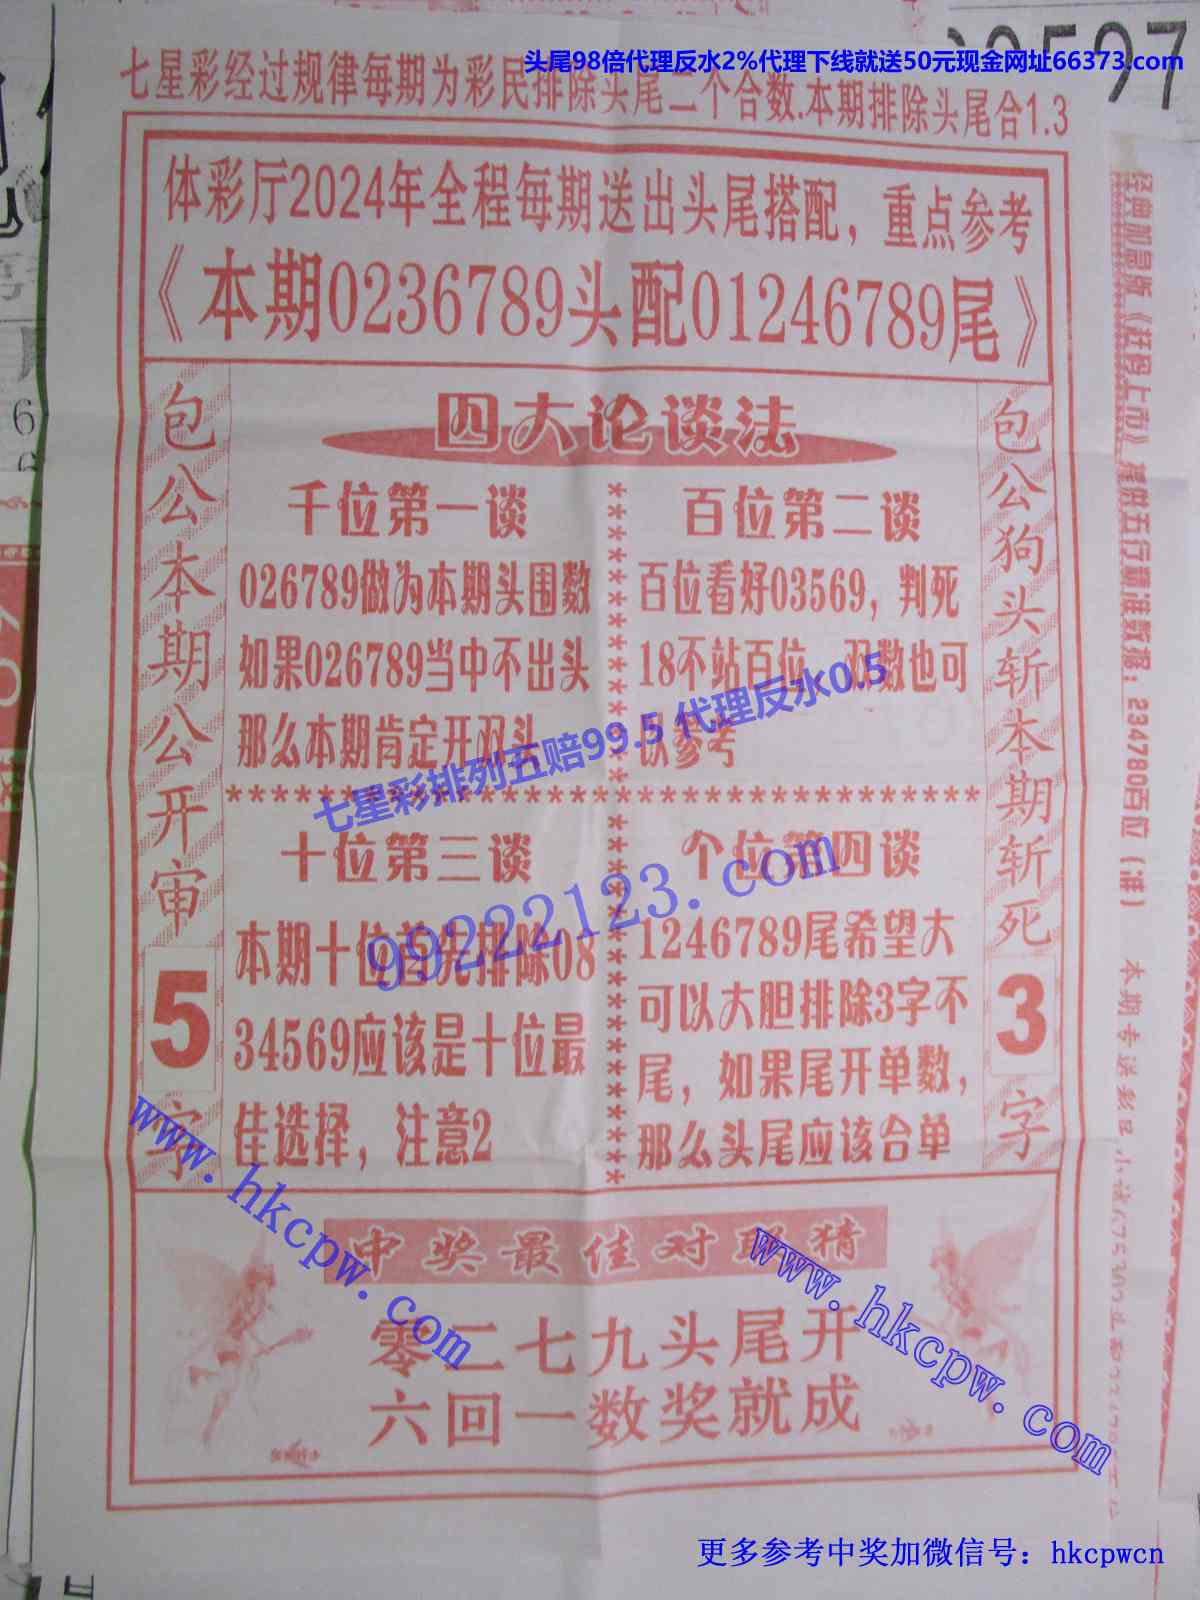 头尾98倍代理反水2%代理下线就送50元现金网址66373.com
3597
七星彩经过规律每期为彩民排除头尾二个合数.本期排除头尾合1.3
体彩厅2024年全程每期送出头尾搭配，重点参考
《本期0236789头配01246789尾》
包公本期公开审
5
字
四大论谈法
千位第一谈
026789做为本期头围数
如果026789当中不出头
那么本期肯定开双头
百位第二谈
百位看好03569，判死
18不站百位，双数也可
以参考
七星彩排列五赔99.5 代理反水0.5
****************************
十位第三谈
本期十位首先排除08
34569应该是十位最
佳选择，注意2
个位第四谈
1246789尾希望大
可以大胆排除3字不
尾，如果尾开单数，
那么头尾应该合单
99222123.com
包公狗头斩本期斩死
3
字
中奖最佳对联猜
零二七九头尾开
六回一数奖就成
www.hkcpw.com
www.hkcpw.com
提供五行霸准数据：234780百位（准）
本期专送彩民
更多参考中奖加微信号：hkcpwcn